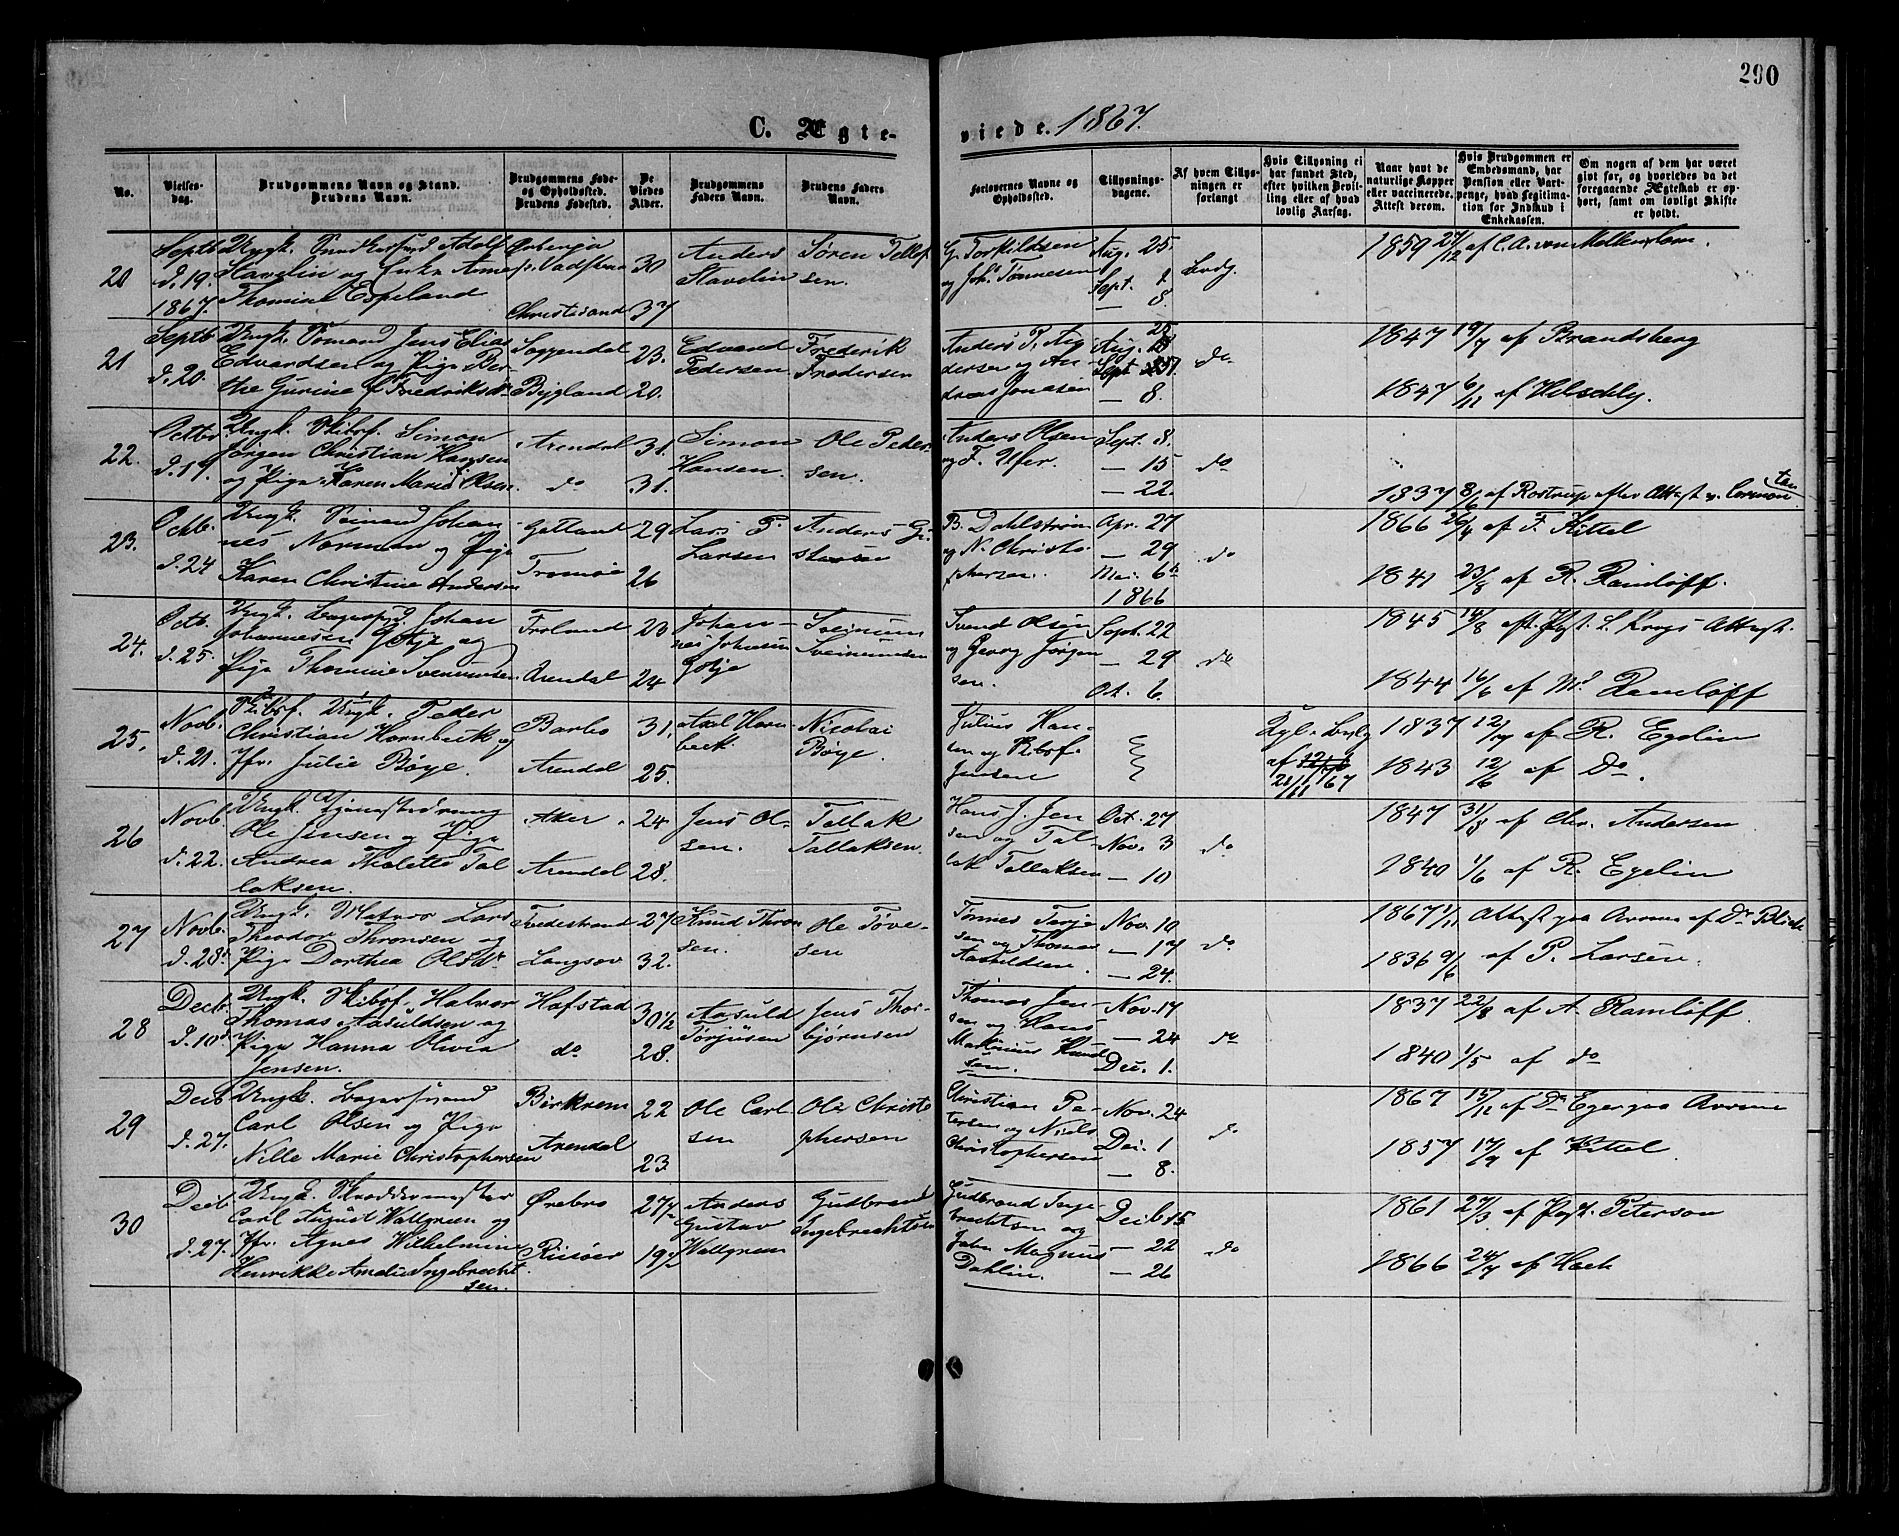 290
C. Ægte-
viede. 1867.
No.
Vielses-
dag.
Brudgommens Navn og Stand.
Brudens Navn.
Brudgommens Føde-
og Opholdssted.
Brudens Fødested.
De
Viedes
Alder.
Brudgommens
Faders Navn.
Brudens Faders
Navn.
Forlovernes Navne og
Opholdssted.
Tillysnings-
dagene.
Af hvem Tillys-
ningen er
forlangt
Hvis Tillysning ei
har fundet Sted,
efter hvilken Bevil-
ling eller af hvad
lovlig Aarsag.
Naar havt de
naturlige Kopper
eller vaccinerede.
Attest derom.
Hvis Brudgommen er
Embedsmand, har
Pension eller Vart-
penge, hvad Legitima-
tion for Indskud i
Enkekassen.
Om nogen af dem har været
gift før, og hvorledes da det
foregaaende Ægteskab er op-
hørt, samt om lovligt Skifte
er holdt.
20
Septb
d. 19.
1867.
Ungk. Adolf
Slavelin og Enke Anne
Thomine Espeland
Vadstena
Christiansand
30
37
Anders
Slavelin
Søren Tellef
sen.
G. Torkildsen
og Johs Tønnesen
Aug. 25
Sept. 1
— 8.
Brdg.
1859 27/12 af C. A. von
21
Septb
d. 20.
Ungk. Sømand Jens Elias
Edvardsen og Pige Ber
the Gurine Fredriksdr
Soggendal
Bygland
23.
20.
Edvard
Pedersen
Frederik
Frodersen
Anders P. An
dersen og An
dreas Jonasen
Aug. 25
Sept. 1
— 8.
do
1847 19/7 af Brandsberg
1847 6/11 af
22.
Octbr
d. 19.
Ungk. Skibsf. Simon
Jørgen Christian Hansen
og Pige Karen Marie Olsen.
Arendal
do
31.
31.
Simon
Hansen.
Ole Peder-
sen.
Anders Olsen
og F. Ufer.
Sept. 8.
— 15
— 22.
do
1837 8/6 af Rostrup efter Attest v.
23.
Octb.
d. 24
Ungk. Sømand Johan
nes Norman og Pige
Karen Christine Andersen
Gotland
Tromøe
29
26
Lars P.
Larsen
Anders Gu-
stavsen
B. Dahlstrøm
og N. Christo-
phersen.
Apr. 27
— 29
Mai. 6te
1866
do
1866 26/4 af F. Kittel
1841 23/8 af R. Ramløff.
24.
Octb.
d. 25.
Ungk. Johan
Johannessen Gotje og
Pige Thomine Svennumsen
Froland
Arendal
23
24
Johan-
nes Johnsen
Gotje
Sveinum
Sveinumsen
Svend Olsen
og Georg Jørgen
sen.
Sept. 22
— 29
Oct. 6
do
1845 14/8 eft. Pgst. L. Krogs Attest.
1844 16/6 af Ramløff
25.
Novb.
d. 21.
Skibsf. Ungk. Peder
Christian Hornbeck og
Jfr. Julie Bøye.
Barbo
Arendal
31.
25.
Axel Horn-
beck.
Nicolai
Bøye.
Julius Han-
sen og Skibsf.
Jensen
Kgl. Bvlg
af
21/11 67
1837 12/7 af R. Egelin
1843 12/6 af Do.
26
Novb
d. 22.
Ungk.
Ole Jensen og Pige
Andrea Thalette Tal
laksen.
Aker.
Arendal
24
28.
Jens Ol-
sen.
Tallak
Tallaksen.
Hans J. Jen
sen og Tal
lak Tallaksen
Oct. 27
Nov. 3
— 10
do
1847 31/8 af Chr. Andersen
1840 1/6 af R. Egelin
27
Novb.
d. 28.
Ungk. Matros Lars
Theodor Thronsen og
Pige Dorthea Olsdr
Tvedestrand
Langsøv
27
32.
Knud Thron
sen.
Ole Tøve-
sen
Tønnes Terje
sen og Thomas
Aasuldsen.
Nov. 10
— 17
— 24.
do
1867 1/11 Attest paa Arrene af Dr Blich
1836 9/6 af P. Larsen.
28
Decb.
d. 10d.
Ungk. Skibsf. Halvor
Thomas Aasuldsen og
Pige Hanna Olivia
Jensen.
Hafstad
do
30 1/2
28.
Aasuld
Torjusen
Jens Thor-
bjørnsen
Thomas Jen-
sen og Hans
Mathinus Knud
sen.
Nov. 17
— 24
Dec. 1.
do
1837 22/8 af A. Ramløff.
1840 1/5 af do
29
Decb
d. 27.
Ungk.
Carl Olsen og Pige
Nille Marie Christophersen
Birkrem
Arendal
22
23
Ole Carl
sen
Ole Christo
phersen
Christian Pe-
tersen og Niels
Christophersen
Nov. 24
Dec. 1
— 8.
do
1867 15/12 af Dr Eger paa Arrene
1857 17/9 af Kittel
30
Decb
d. 27.
Ungk. Skræddermester
Carl August Wallgreen og
Jfr. Agnes Wilhelmine
Henrikke Amalie Ingebrecht
sen.
Ørebro
Risøer
27 1/2
19 1/2
Anders
Gustav
Wallgreen
Gudbrand
Ingebrechtsen
Gudbrand Inge-
brechtsen og
John Magnus
Dahlin.
Decb. 15
— 22
— 26
do
1861 27/3 af Pgst. Peterson
1866 24/7 af Hach